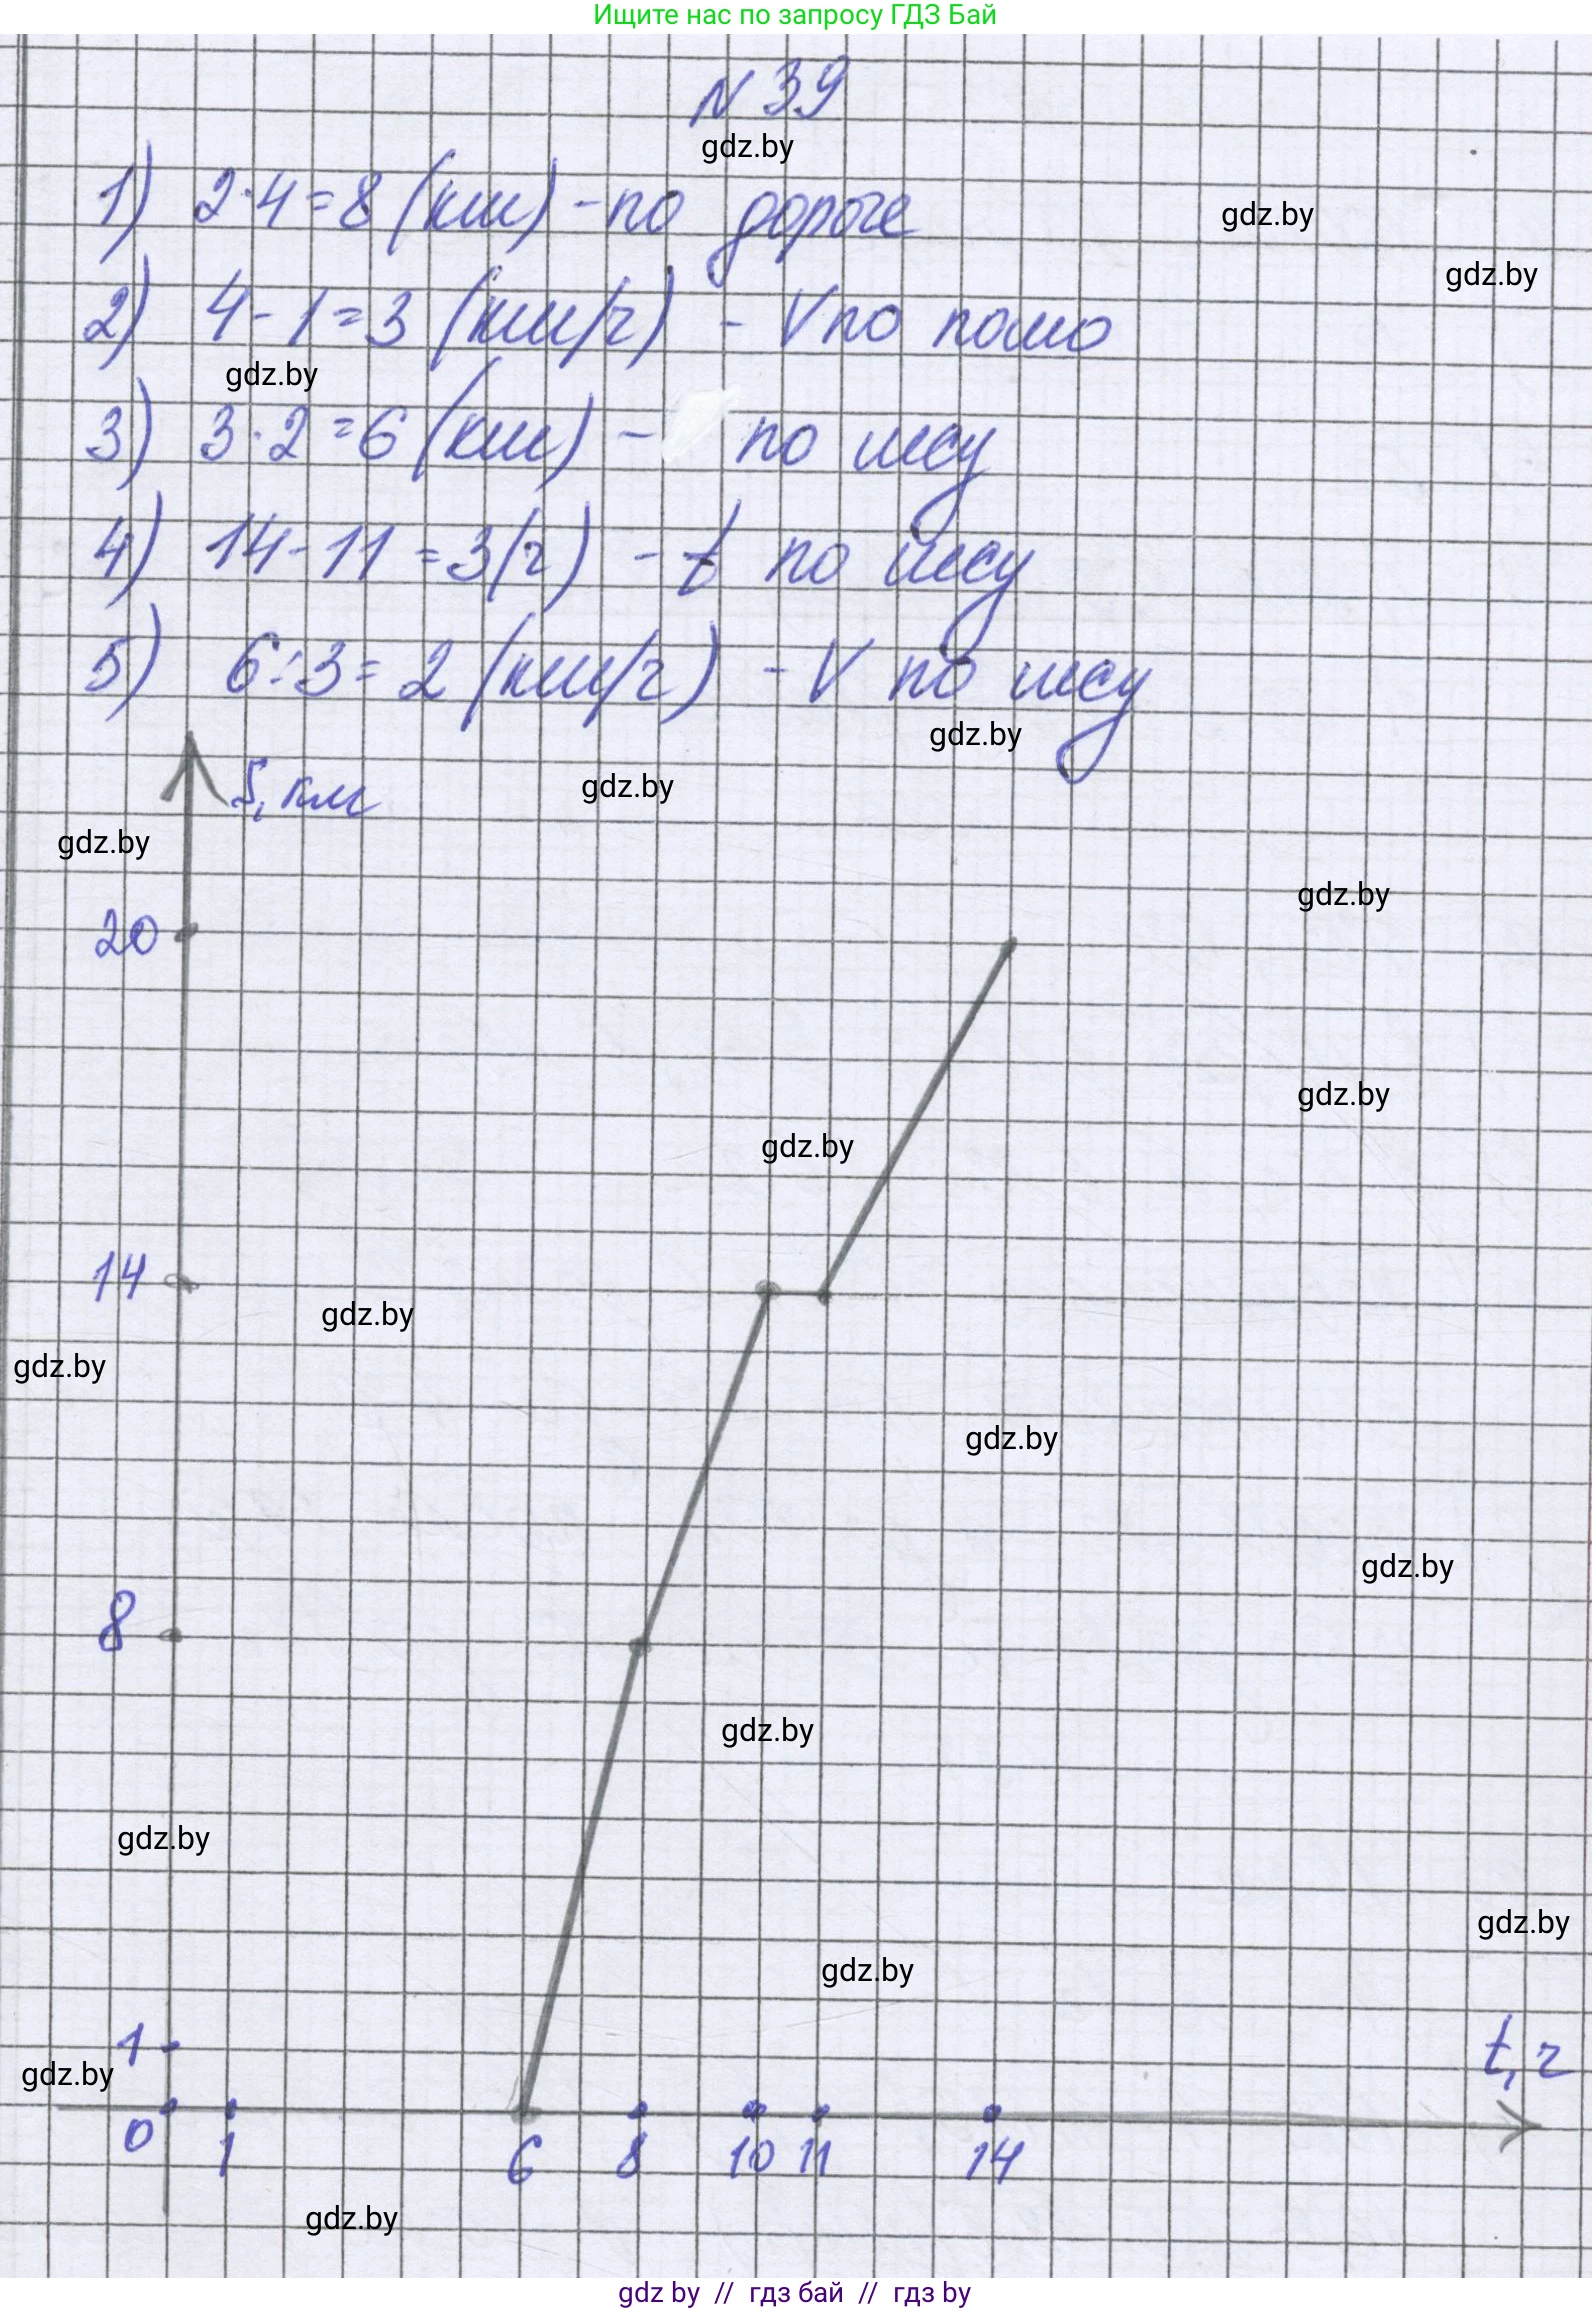 Ищите нас по запросу ГДЗ Бай
N 39
gdz.by
1) 2·4=8 (км) - по дороге
gdz.by
gdz.by
2) 4-1=3 (км/ч) - V по полю
gdz.by
3) 3·2=6 (км) - по лесу
4) 14-11=3(ч) - t по лесу
5) 6:3=2 (км/ч) - V по лесу
gdz.by
S, км
gdz.by
gdz.by
gdz.by
20
gdz.by
gdz.by
14
gdz.by
gdz.by
gdz.by
gdz.by
8
gdz.by
gdz.by
gdz.by
gdz.by
1
t, ч
gdz.by
0 1 6 8 10 11 14
gdz.by
gdz by // гдз бай // гдз by